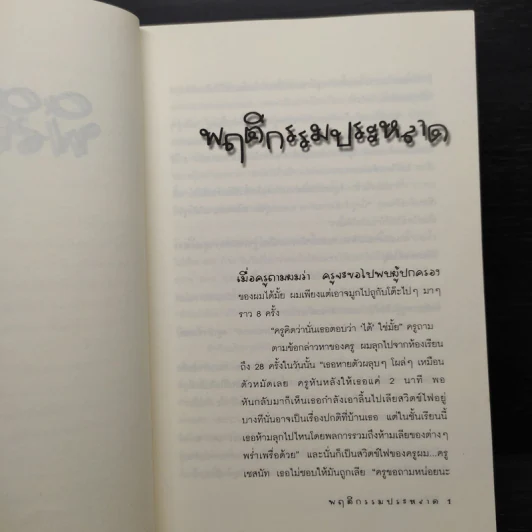 พฤติกรรมประหลาด
เมื่อครูถามผมว่า ครูจะขอไปพบผู้ปกครอง
ของผมได้มั้ย ผมเพียงแต่เอาจมูกไปถูกับโต๊ะไปๆ มาๆ
ราว 8 ครั้ง
"ครูคิดว่านั่นเธอตอบว่า 'ได้' ใช่มั้ย" ครูถาม
ตามข้อกล่าวหาของครู ผมลุกไปจากห้องเรียน
ถึง 28 ครั้งในวันนั้น "เธอหายตัวผลุบๆ โผล่ๆ เหมือน
ตัวหมัดเลย ครูหันหลังให้เธอแค่ 2 นาที พอ
หันกลับมาก็เห็นเธอกำลังเอาลิ้นไปเลียสวิตช์ไฟอยู่
บางทีนั่นอาจเป็นเรื่องปกติที่บ้านเธอ แต่ในชั้นเรียนนี้
เธอห้ามลุกไปไหนโดยพลการรวมถึงห้ามเลียของต่างๆ
พร่ำเพรื่อด้วย" และนั่นก็เป็นสวิตช์ไฟของครูผม...ครู
เซสนัท เธอไม่ชอบให้มันถูกเลีย "ครูขอถามหน่อยนะ
พฤติกรรมประหลาด 1